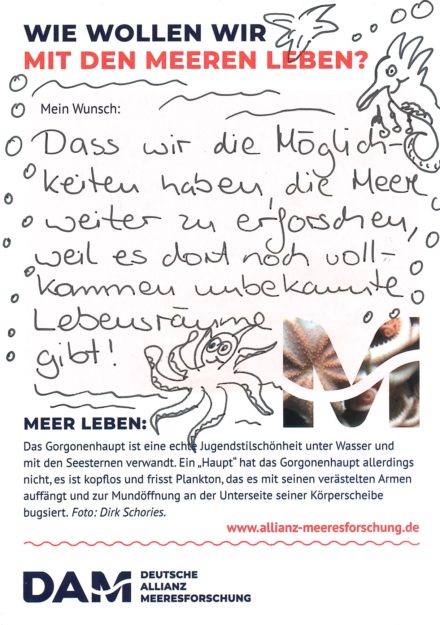 WIE WOLLEN WIR
MIT DEN MEEREN LEBEN?
Mein Wunsch:
Dass wir die Möglich-
keiten haben, die Meere
weiter zu erforschen,
weil es dort noch voll-
kommen unbekannte
Lebensräume
gibt!
MEER LEBEN:
Das Gorgonenhaupt ist eine echte Jugendstilschönheit unter Wasser und
mit den Seesternen verwandt. Ein „Haupt“ hat das Gorgonenhaupt allerdings
nicht, es ist kopflos und frisst Plankton, das es mit seinen verästelten Armen
auffängt und zur Mundöffnung an der Unterseite seiner Körperscheibe
bugsiert. Foto: Dirk Schories.
www.allianz-meeresforschung.de
DAM DEUTSCHE
ALLIANZ
MEERESFORSCHUNG